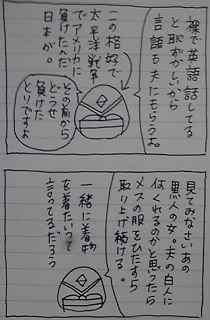 裸で英語話してる
と恥ずかしいから
言語を夫にもらうよ。
この格好で
太平洋戦争
でアメリカに
負けたへた
日本が。
その前から
どうせ
負けた
とりですよ
見てみなさいあの
黒人の女。夫の白人に
何くれるのかと思ったら
メスの服をひたすら
取り上げ続ける。
一緒に着物
を着たいって
言ってるだろっ